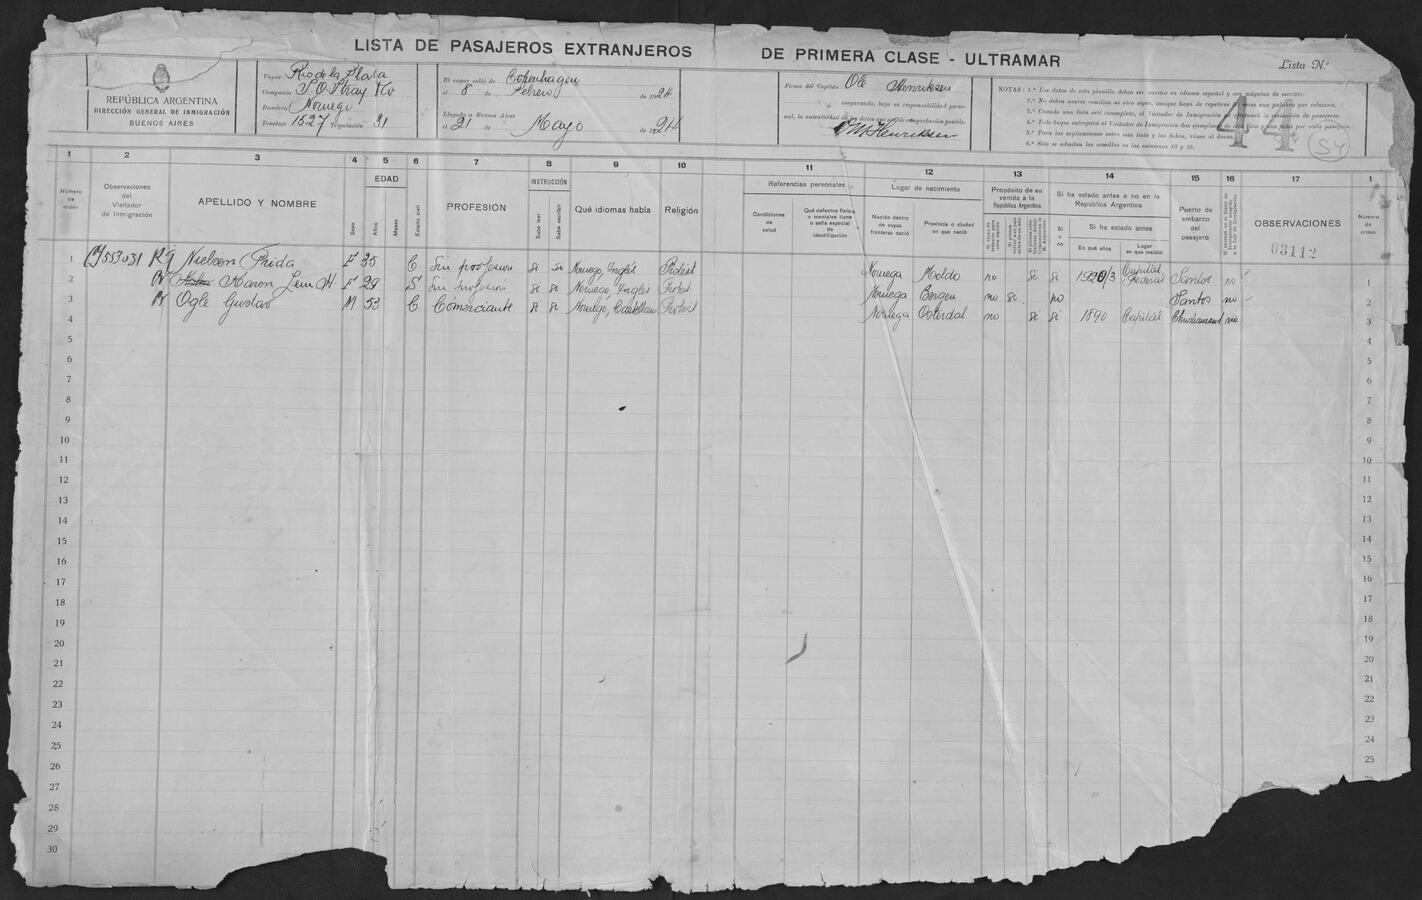 LISTA DE PASAJEROS EXTRANJEROS DE PRIMERA CLASE - ULTRAMAR
Lista N.º
REPÚBLICA ARGENTINA
DIRECCIÓN GENERAL DE INMIGRACIÓN
BUENOS AIRES
Vapor Rio de la Plata
Compañía
Bandera Noruego
Tonelaje 1527 Tripulación 31
El vapor salió de Copenhagen
el 8 de Febrero de 1924
Llegado a Buenos Aires
el 21 de Mayo de 1924
Firma del Capitán Ole Henriksen
asegurando, bajo su responsabilidad perso-
nal, la autenticidad de los datos que son de comprobación posible.
Henriksen
NOTAS: 1.ª Los datos de esta planilla deben ser escritos en idioma español y con máquina de escribir.
2.ª No deben usarse comillas ni otro signo, aunque haya de repetirse
3.ª Cuando una lista esté incompleta, el Visitador de Inmigración
4.ª Todo buque entregará al Visitador de Inmigración dos ejemplares de esta lista y una ficha por cada pasajero.
5.ª Para las explicaciones sobre esta lista y las fichas, véase al dorso.
6.ª Sólo se admiten las comillas en las columnas 10 y 15.
44
54
1 2 3 4 5 6 7 8 9 10 11 12 13 14 15 16 17 1
Número de orden
Observaciones del Visitador de Inmigración
APELLIDO Y NOMBRE
Sexo
EDAD
Años
Meses
Estado civil
PROFESIÓN
INSTRUCCIÓN
Sabe leer
Sabe escribir
Qué idiomas habla
Religión
Referencias personales
Condiciones de salud
Qué defectos físicos o mentales tiene o seña especial de identificación
Lugar de nacimiento
Nación dentro de cuyas fronteras nació
Provincia o ciudad en que nació
Propósito de su venida a la República Argentina
Si ha estado antes o no en la República Argentina
Si o no
Si ha estado antes
En qué años
Lugar en que residió
Puerto de embarco del pasajero
OBSERVACIONES
03112
Número de orden
1 553031 Nielsen Frida F 35 C Sin profesion si si Noruego, Inglés Protest Noruega Molde no si si Capital Federal Santos no 1
2 Karen F 29 S Sin profesion si si Noruego, Inglés Protest Noruega Bergen no si no Santos no 2
3 Ogle Gustav M 53 C Comerciante si si Noruego, Castellano Protest Noruega Osterdal no si si 1890 Capital no 3
4 4
5 5
6 6
7 7
8 8
9 9
10 10
11 11
12 12
13 13
14 14
15 15
16 16
17 17
18 18
19 19
20 20
21 21
22 22
23 23
24 24
25 25
26
27
28
29
30